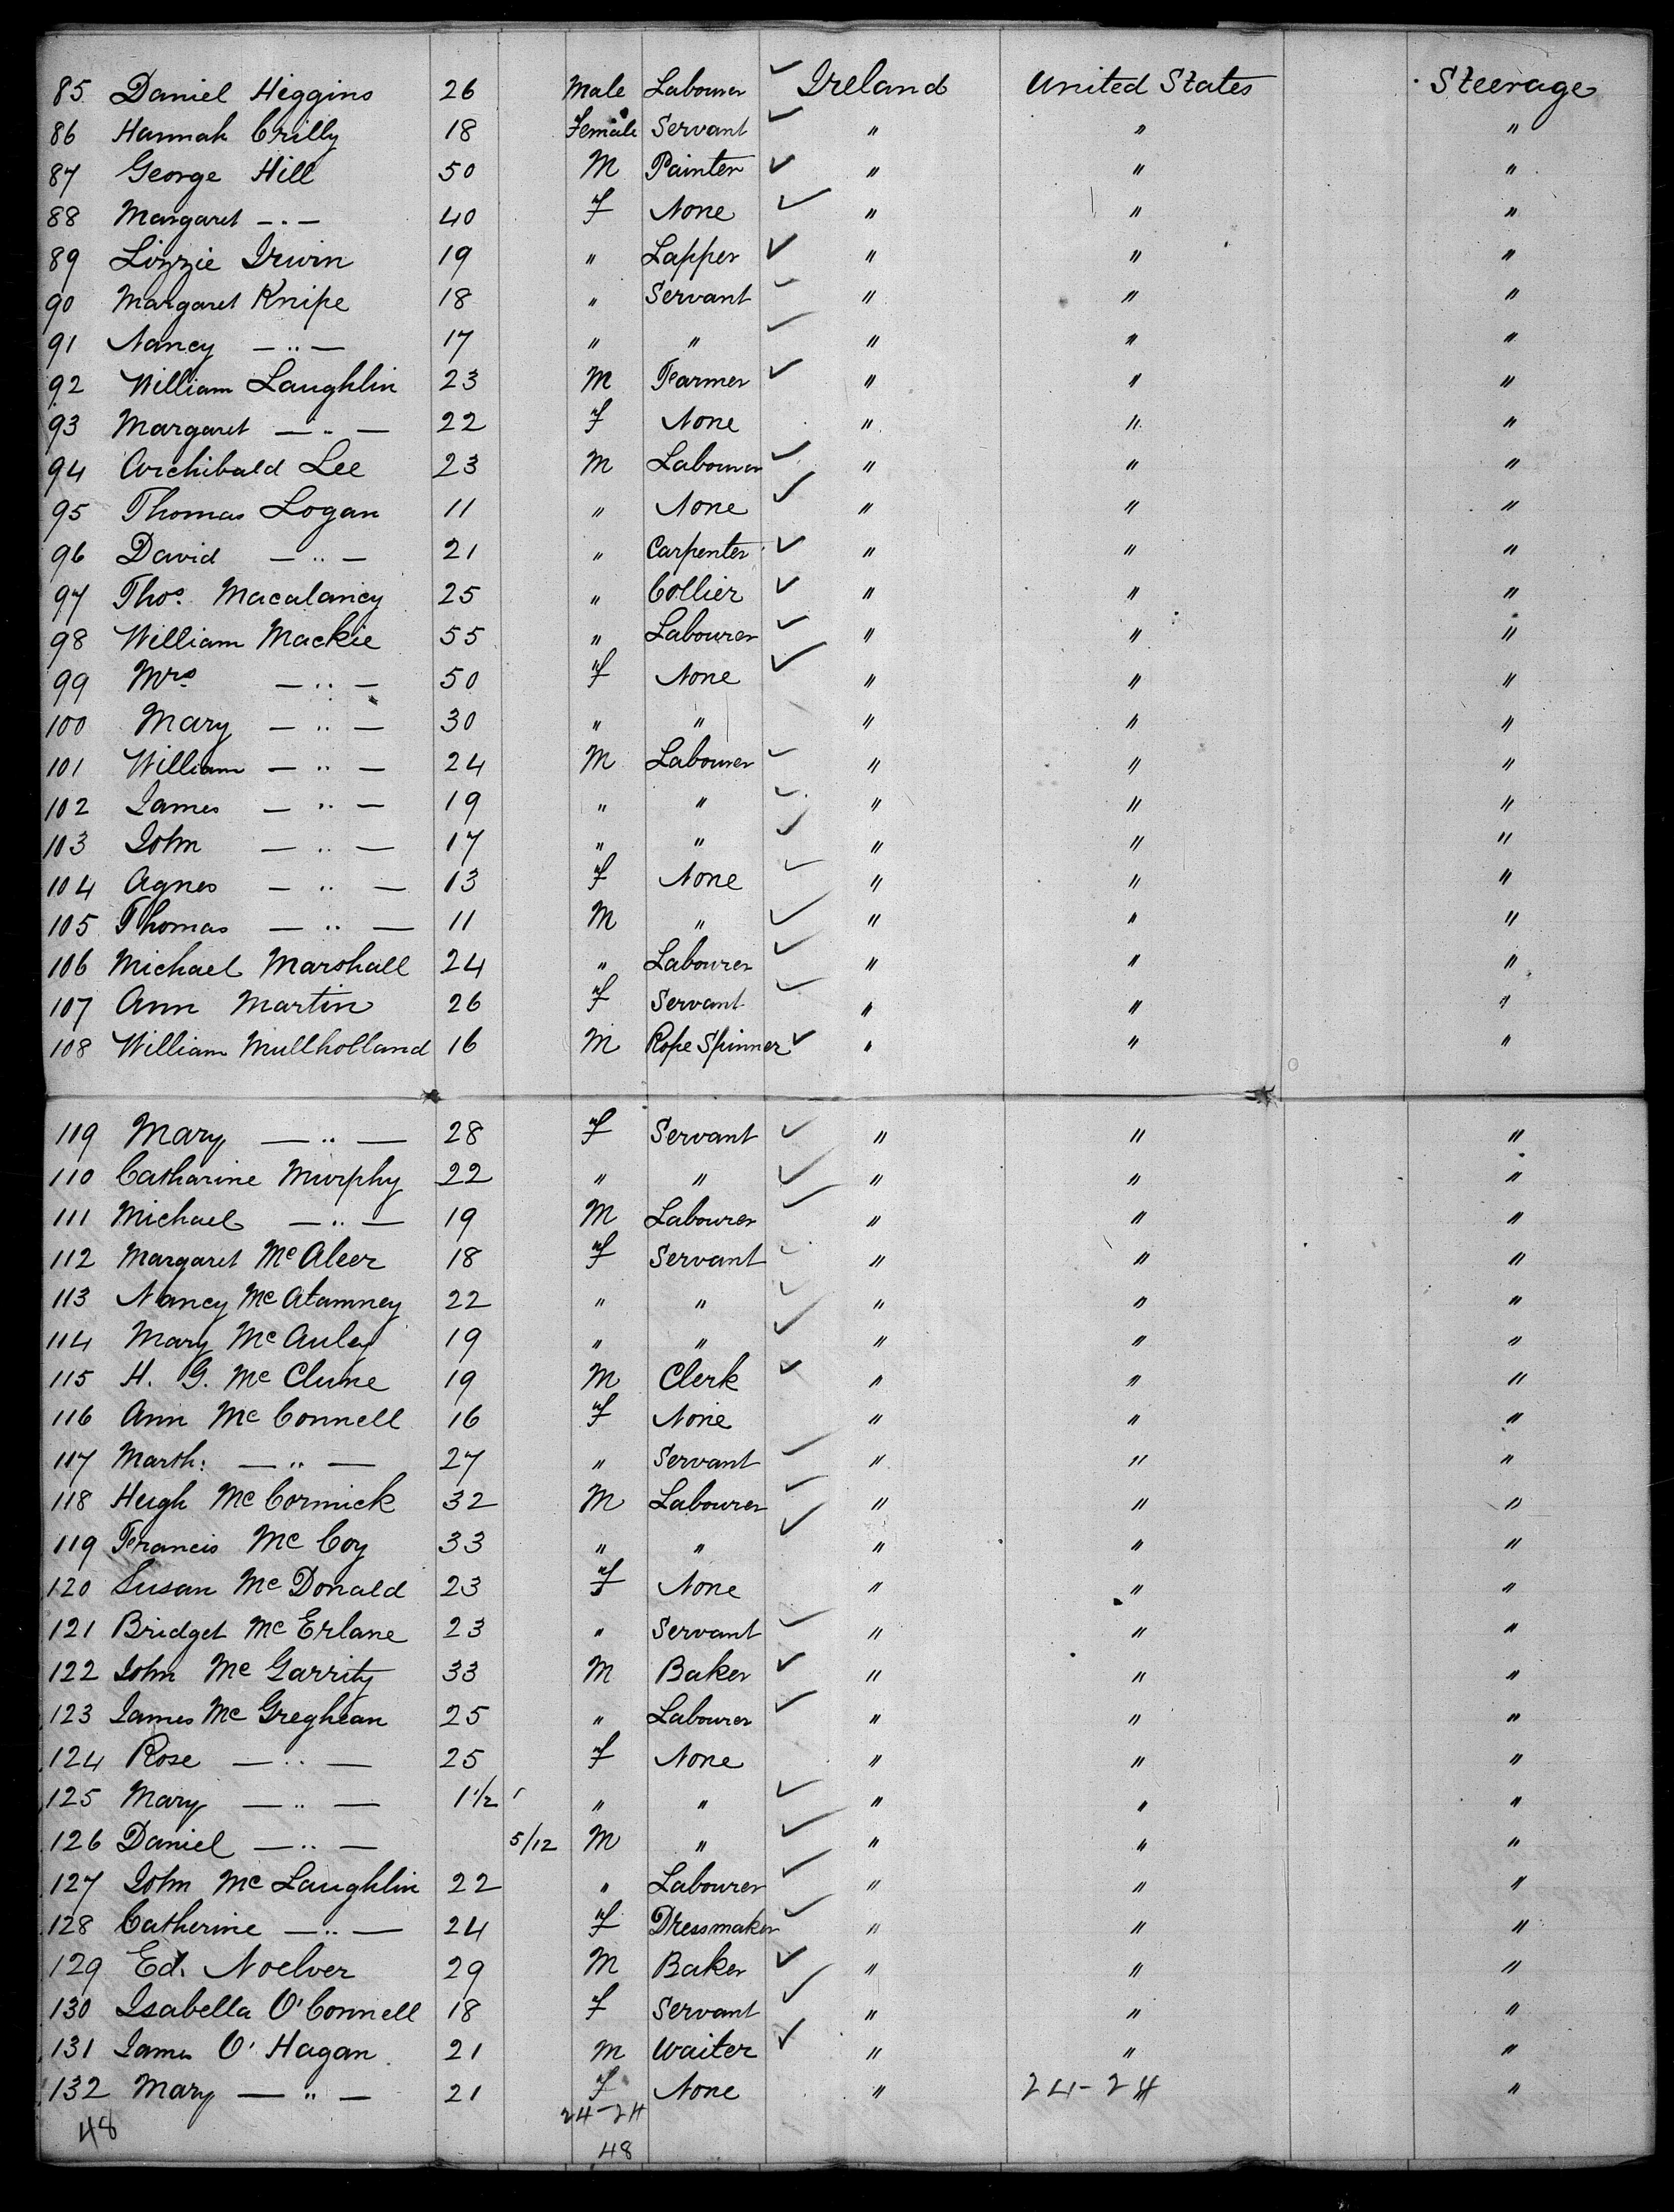 85 Daniel Higgins 26 Male Labourer ✓ Ireland United States Steerage
86 Hannah Crilly 18 Female Servant ✓ " " "
87 George Hill 50 M Painter ✓ " " "
88 Margaret — . — 40 f None ✓ " " "
89 Lizzie Irwin 19 " Lapper ✓ " " "
90 Margaret Knipe 18 " Servant ✓ " " "
91 Nancy — " — 17 " " ✓ " " "
92 William Laughlin 23 M Farmer ✓ " " "
93 Margaret — " — 22 f None " " "
94 Archibald Lee 23 M Labourer ✓ " " "
95 Thomas Logan 11 " None ✓ " " "
96 David — " — 21 " Carpenter ✓ " " "
97 Thos. Macalancy 25 " Collier ✓ " " "
98 William Mackie 55 " Labourer ✓ " " "
99 Mrs — " — 50 f None ✓ " " "
100 Mary — " — 30 " " " " "
101 William — " — 24 M Labourer ✓ " " "
102 James — " — 19 " " ✓ " " "
103 John — " — 17 " " ✓ " " "
104 Agnes — " — 13 f None ✓ " " "
105 Thomas — " — 11 M " ✓ " " "
106 Michael Marshall 24 " Labourer ✓ " " "
107 Ann Martin 26 f Servant ✓ " " "
108 William Mullholland 16 M Rope Spinner ✓ " " "
119 Mary — " — 28 f Servant ✓ " " "
110 Catharine Murphy 22 " " ✓ " " "
111 Michael — " — 19 M Labourer ✓ " " "
112 Margaret McAleer 18 f Servant ✓ " " "
113 Nancy McAtamney 22 " " ✓ " " "
114 Mary McAuley 19 " " ✓ " " "
115 H. G. McClune 19 M Clerk ✓ " " "
116 Ann McConnell 16 f None " " "
117 Marth: — " — 27 " Servant ✓ " " "
118 Hugh McCormick 32 M Labourer ✓ " " "
119 Francis McCoy 33 " " ✓ " " "
120 Susan McDonald 23 f None " " "
121 Bridget McErlane 23 " Servant ✓ " " "
122 John McGarrity 33 M Baker ✓ " " "
123 James McGreghean 25 " Labourer ✓ " " "
124 Rose — " — 25 f None " " "
125 Mary — " — 1 1/2 " " ✓ " " "
126 Daniel — " — 5/12 M " ✓ " " "
127 John McLaughlin 22 " Labourer ✓ " " "
128 Catherine — " — 24 f Dressmaker ✓ " " "
129 Ed. Noelver 29 M Baker ✓ " " "
130 Isabella O'Connell 18 f Servant ✓ " " "
131 James O'Hagan 21 M Waiter ✓ " " "
132 Mary — " — 21 f None " 24-24 "
48 24-24
48